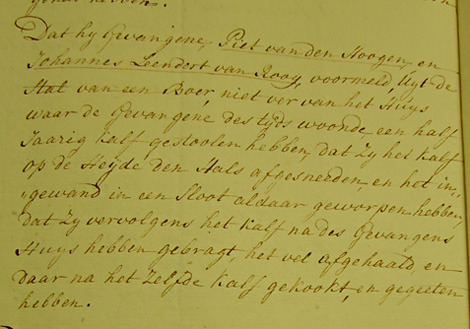 hebben.
Dat hy Gevangene, Piet van den Hoogen, en
Johannes Leendert van Rooy, voormeld, Uyt de
Stal van een Boer, niet ver van het Huys
waar de Gevangene des tyds woonde, een half
Jaarig Kalf gestoolen hebben, dat Zy het Kalf
op de Heyde den Hals afgesneeden, en het in,,
,,gewand in een Sloot aldaar geworpen hebben,
dat Zy vervolgens het Kalf na des Gevangens
Huys hebben gebragt, het vel afgehaald, en
daar na het Zelfde Kalf gekookt, en gegeeten
hebben.